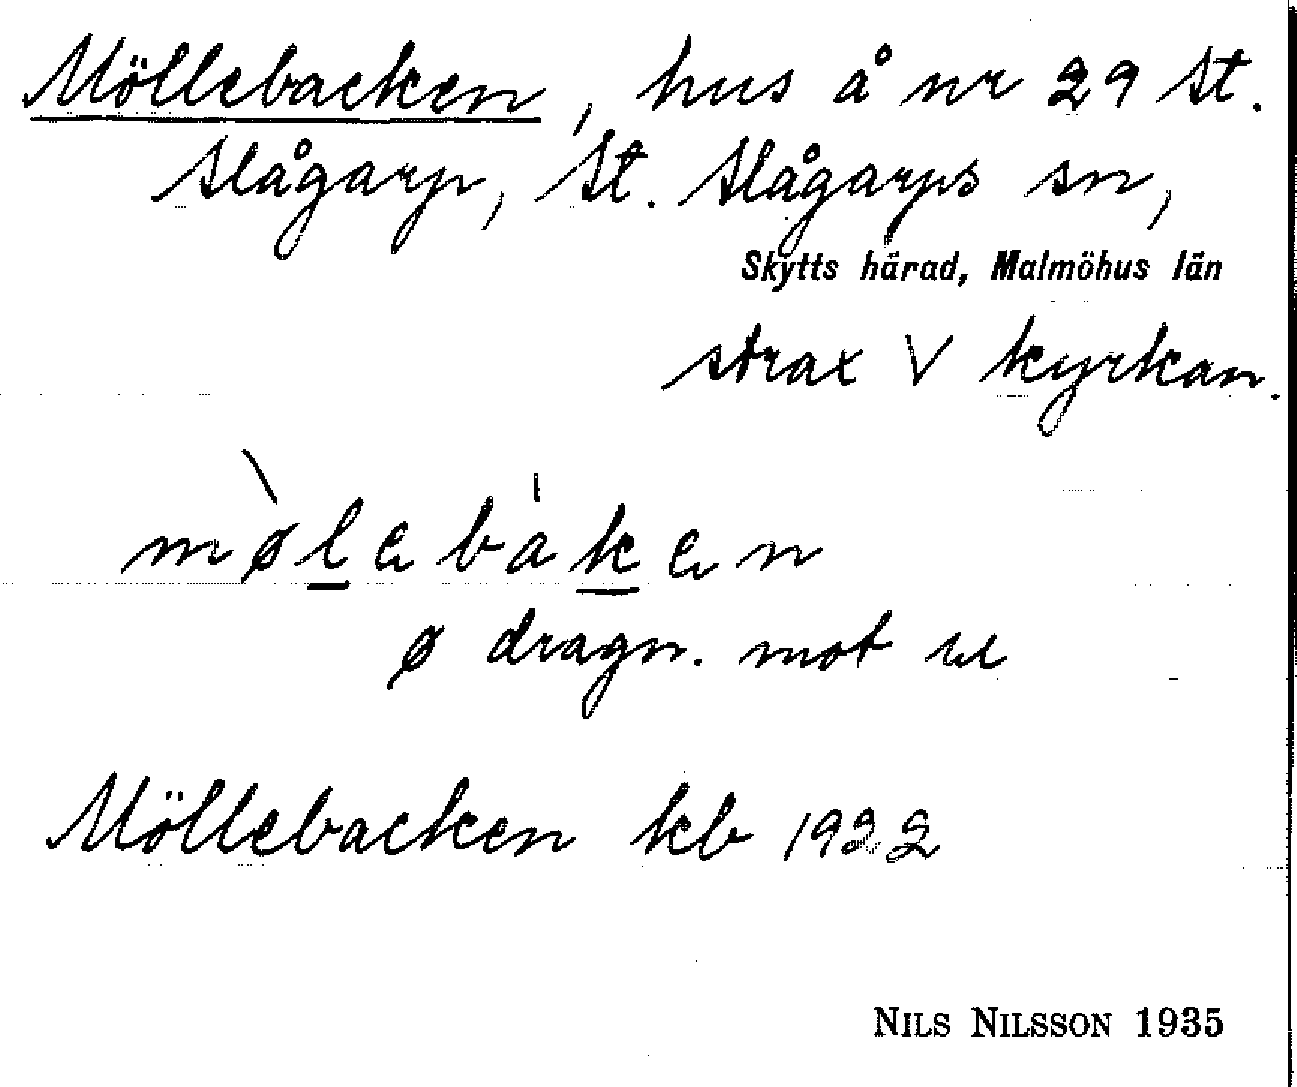 Möllebacken, hus å nr 29 St.
Slågarp, St. Slågarps sn,
Skytts härad, Malmöhus län
strax V kyrkan.
mø̀lebákən
ø dragn. mot
Möllebacken kb 1922
NILS NILSSON 1935